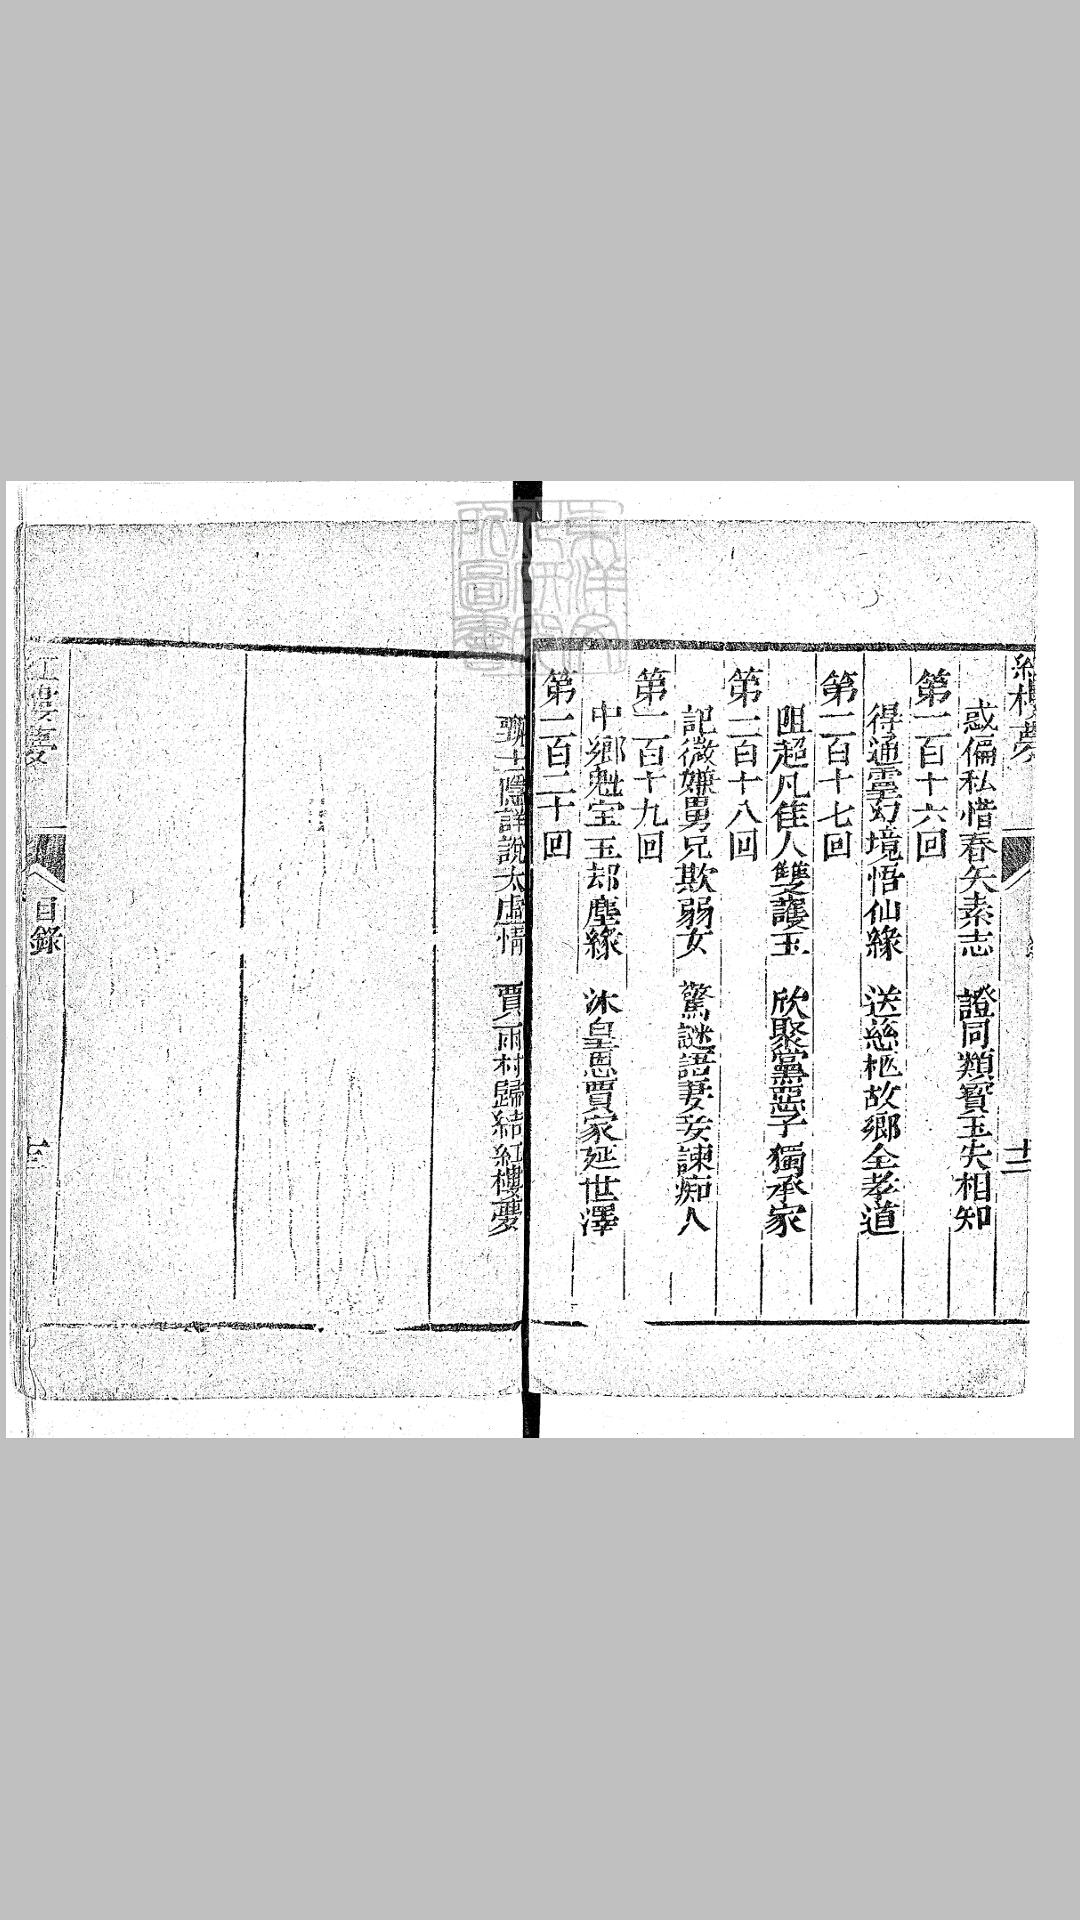 紅樓夢
惑偏私惜春矢素志　證同類寳玉失相知
第一百十六回
得通靈幻境悟仙緣　送慈柩故鄉全孝道
第一百十七回
阻超凡佳人雙護玉　欣聚黨惡子獨承家
第一百十八回
記微嫌舅兄欺弱女　驚謎語妻妾諫痴人
第一百十九回
中鄉魁宝玉却塵緣　沐皇恩賈家延世澤
第一百二十回
甄士隱詳說太虛情　賈雨村歸結紅樓夢
紅樓夢
目錄